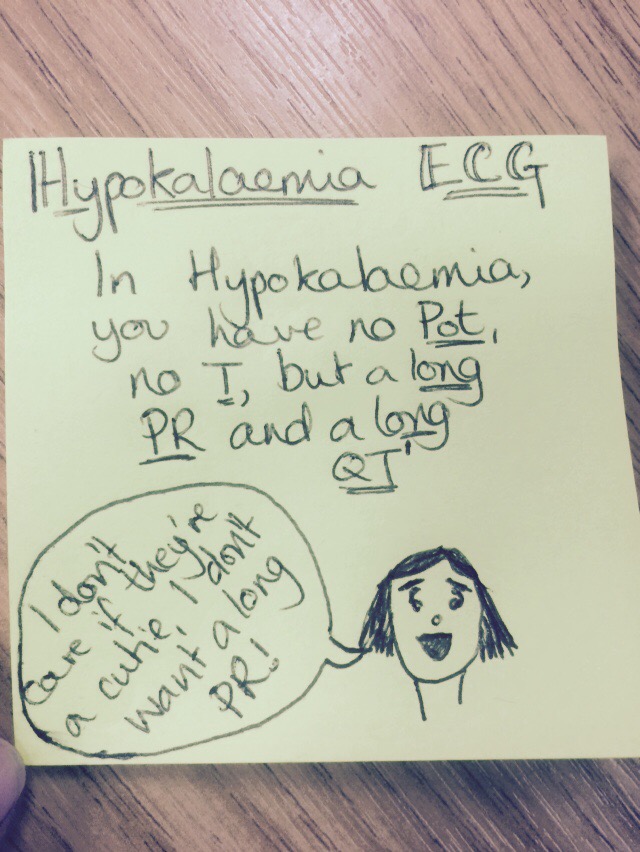 Hypokalaemia ECG
In Hypokalaemia,
you have no Pot,
no T, but a long
PR and a long
QT'
I don't
care if they're
a cutie, I don't
want a long
PR!